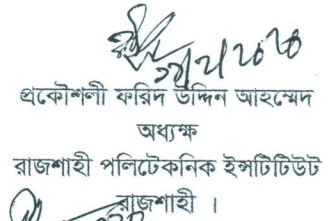 প্রকৌশলী ফরিদ উদ্দিন আহম্মেদ
অধ্যক্ষ
রাজশাহী পলিটেকনিক ইন্সটিটিউট
রাজশাহী ।